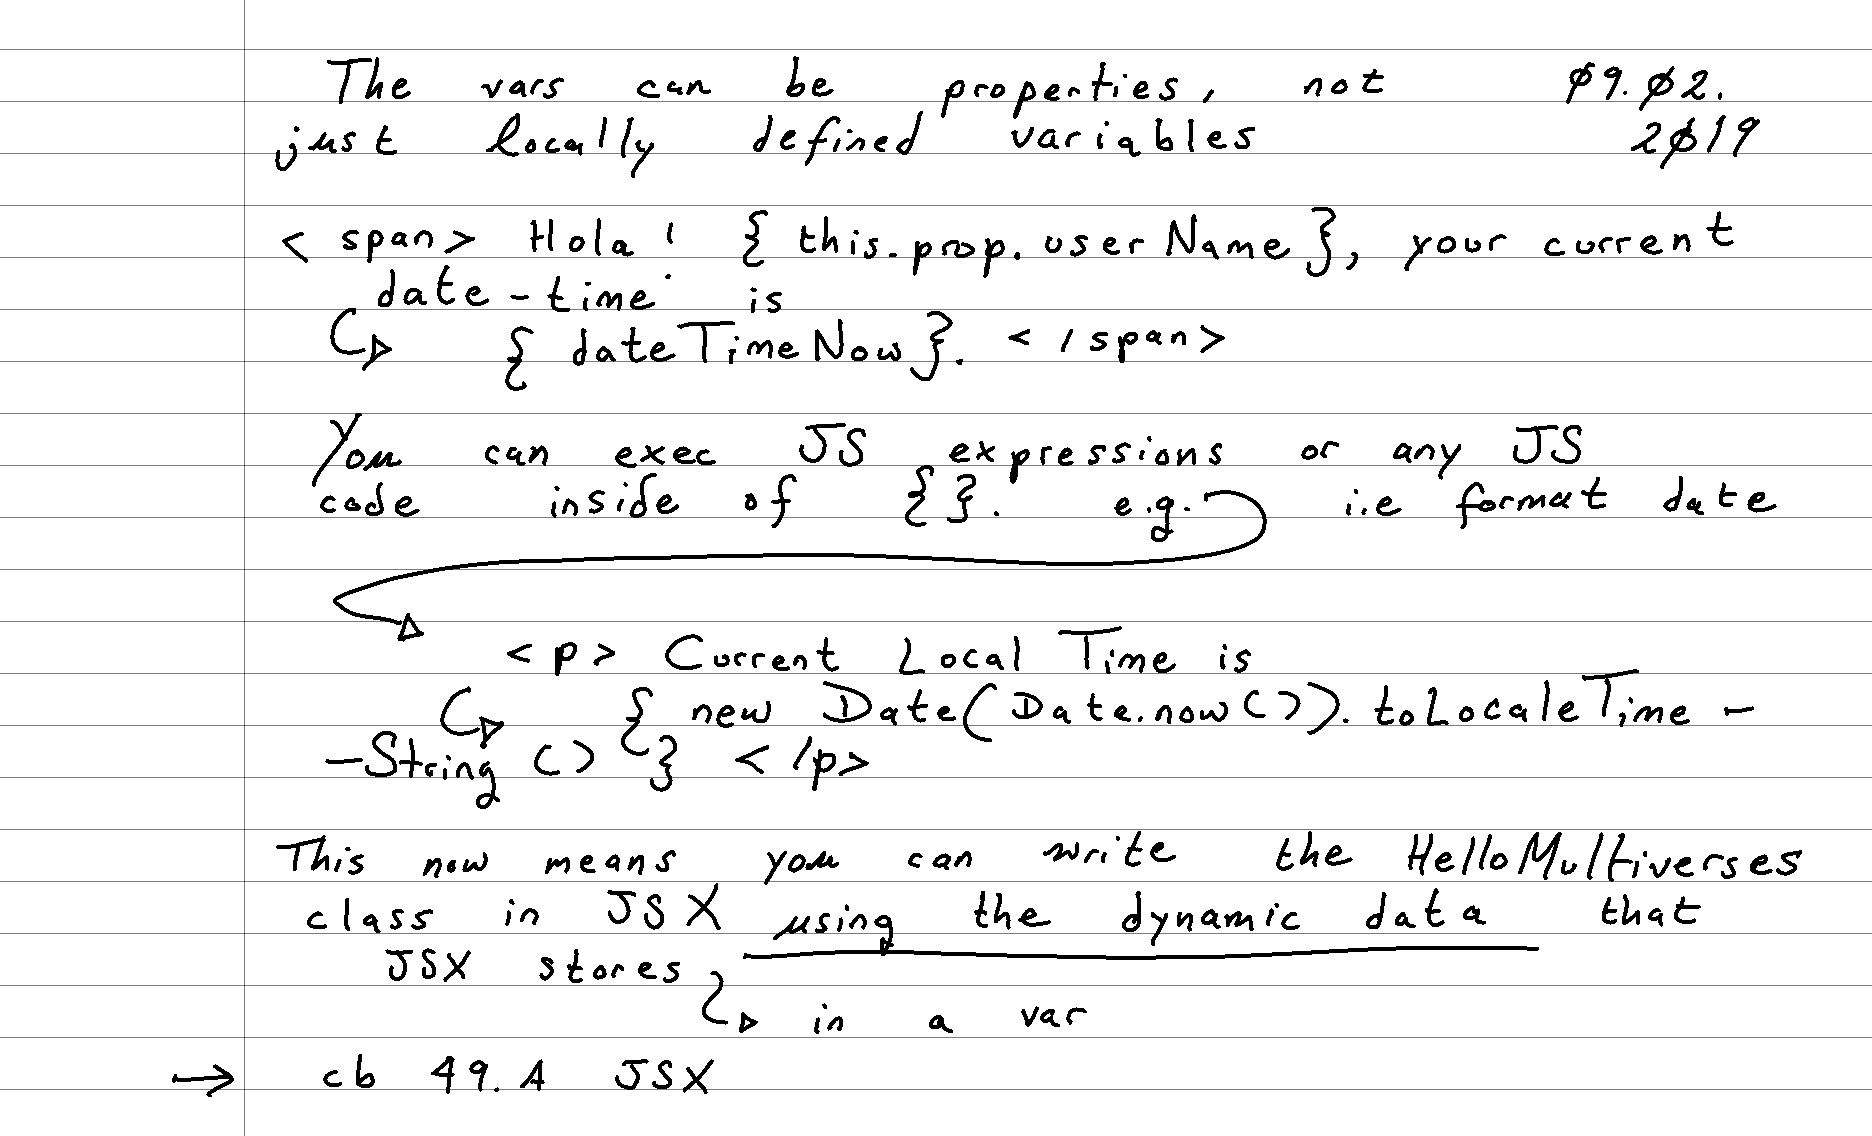 The vars can be properties, not 09.02.
just locally defined variables 2019
<span> Hola! { this.prop.userName}, your current
date-time is
{ dateTimeNow}. </span>
You can exec JS expressions or any JS
code inside of {}. e.g. i.e format date
<p> Current Local Time is
{ new Date(Date.now()).toLocaleTime-
-String () } </p>
This now means you can write the HelloMultiverses
class in JSX using the dynamic data that
JSX stores
in a var
→ cb 49.A JSX